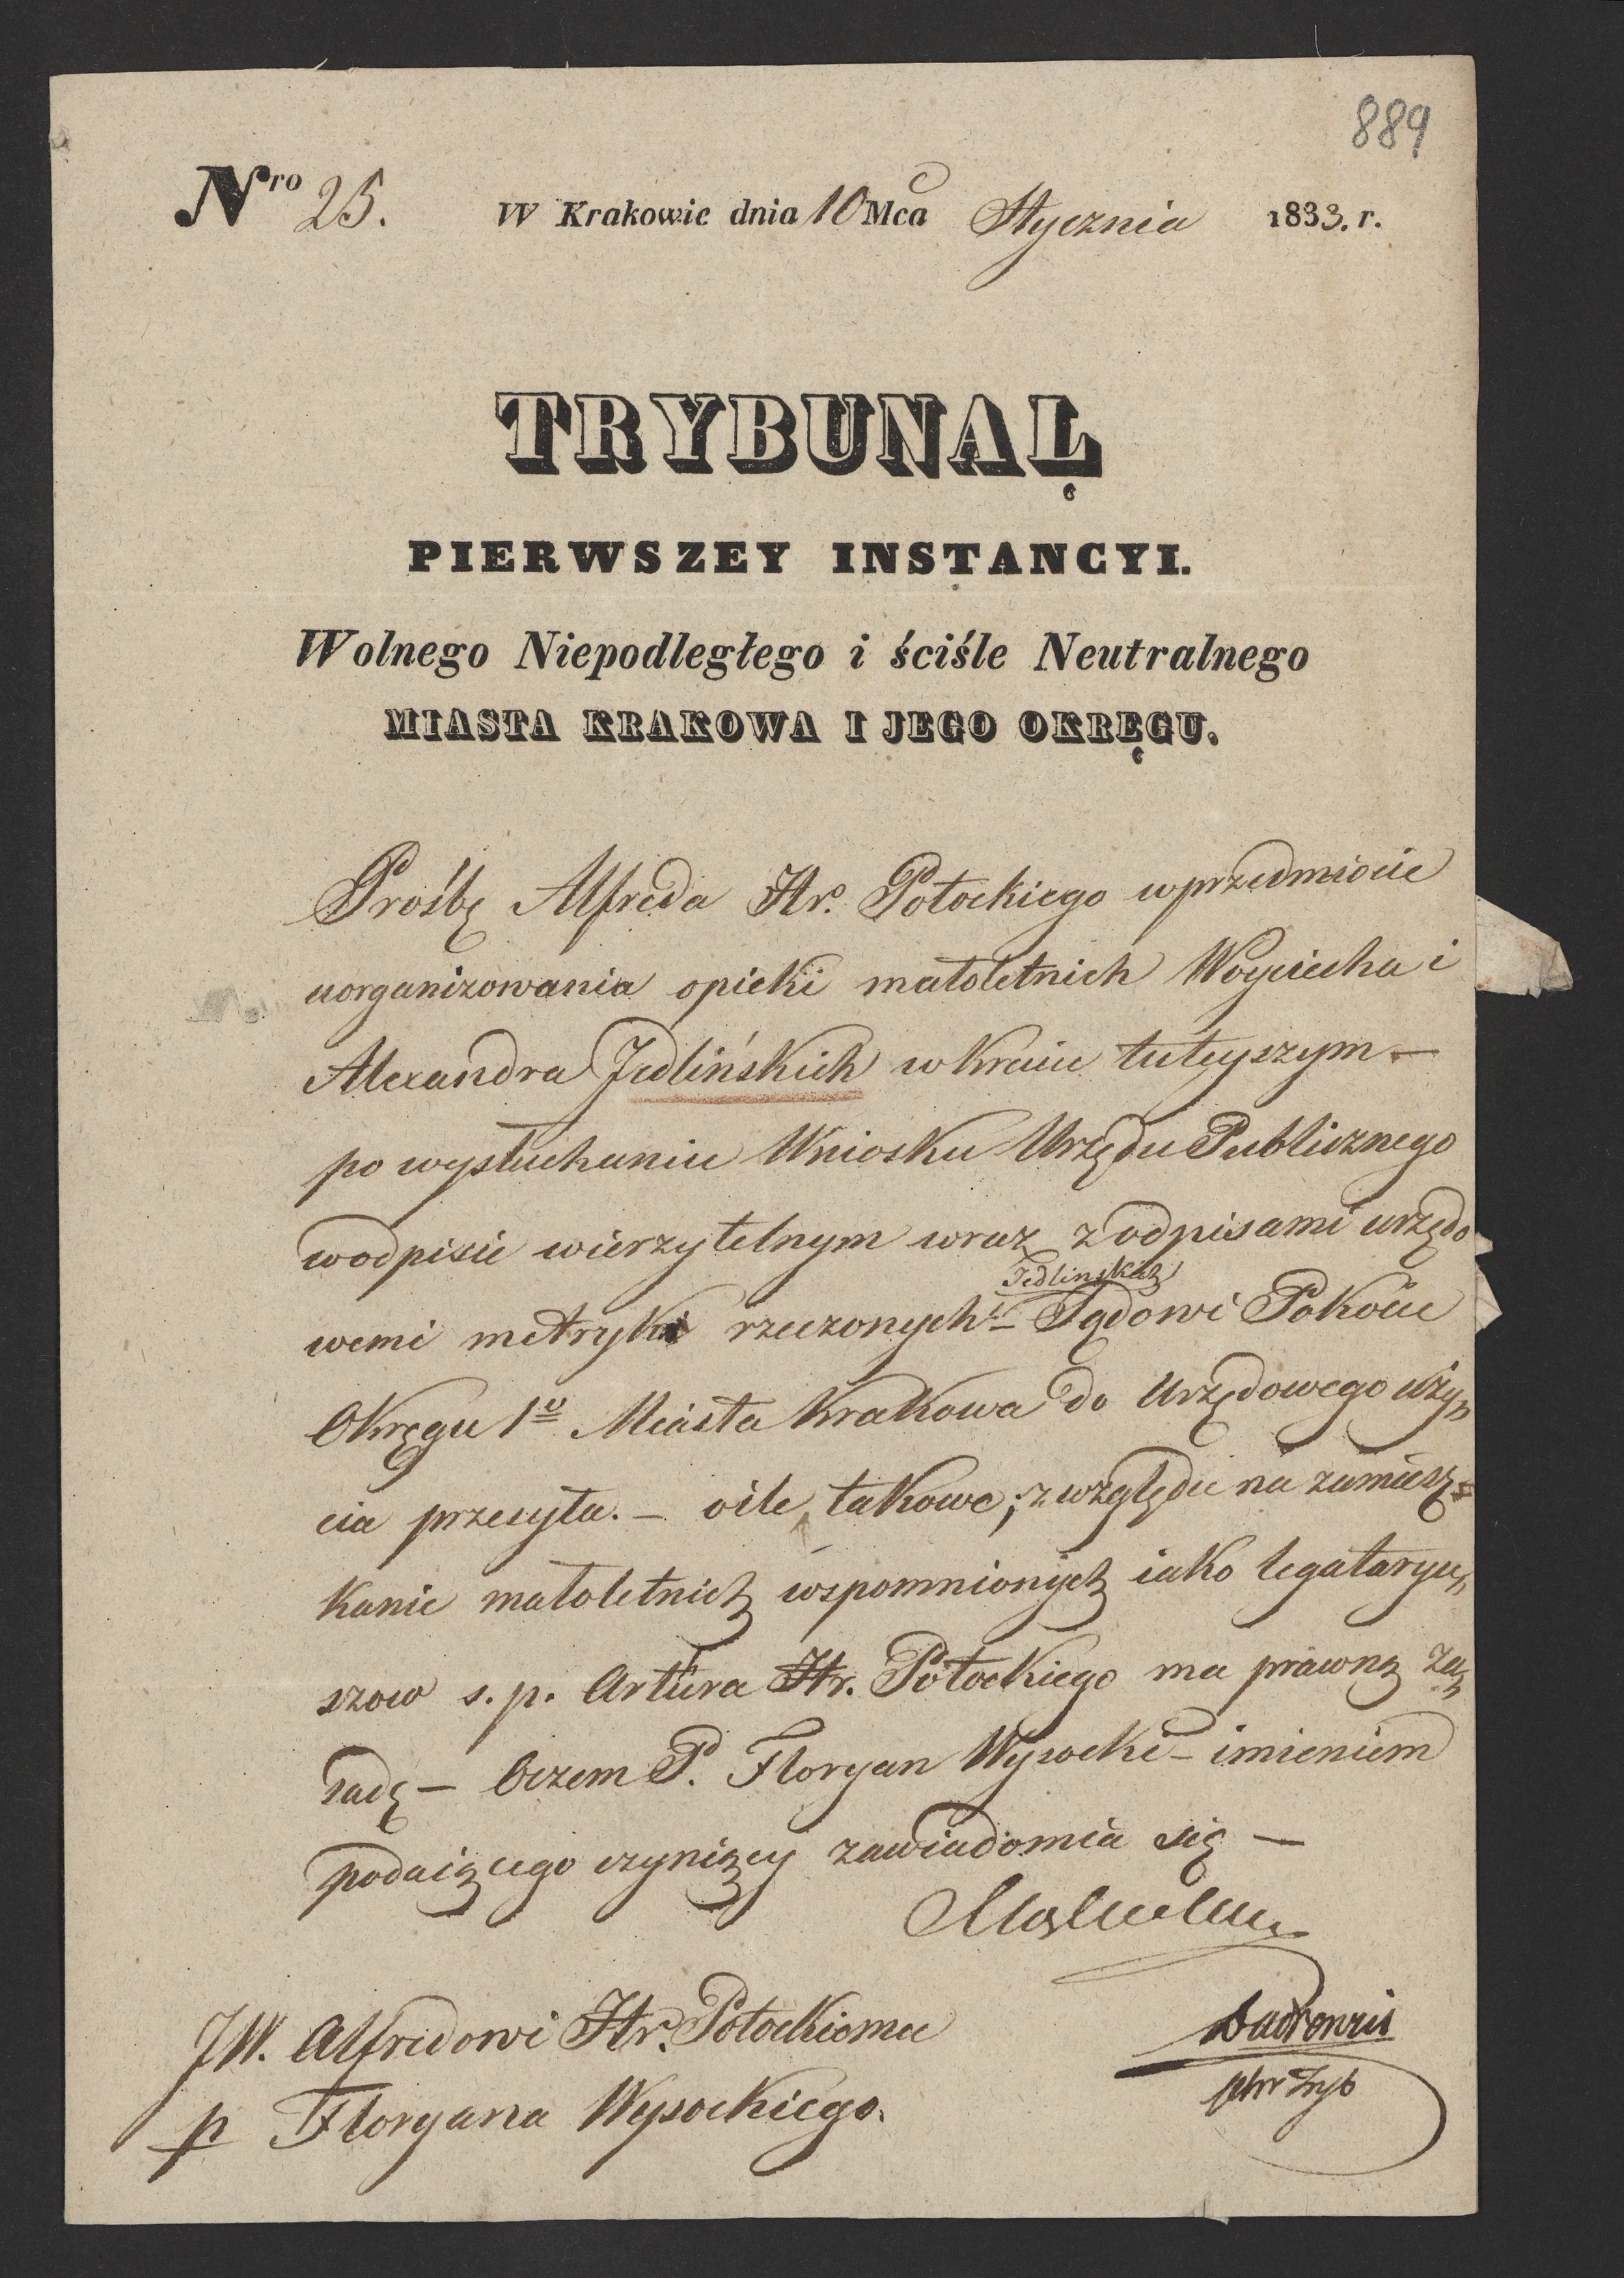 889
Nro 25. W Krakowie dnia 10 Mca Stycznia 1833. r.
TRYBUNAŁ
PIERWSZEY INSTANCYI.
Wolnego Niepodległego i ściśle Neutralnego
MIASTA KRAKOWA I JEGO OKRĘGU.
Prośbę Alfreda Hr. Potockiego w przedmiocie
uorganizowania opieki małoletnich Woyciecha i
Alexandra Jedlińskich w kraiu tuteyszym –
po wysłuchaniu Wniosku Urzędu Publicznego
w odpisie wierzytelnym wraz z odpisami urzędo
wemi metryk rzeczonych – Sądowi Pokoiu
Jedlinskich
Okręgu 1º Miasta Krakowa do Urzędowego uży„
cia przesyła. – oile takowe; z względu na zamiesz„
kanie małoletnich wspomnionych iako legataryu„
szow s. p. Artura Hr. Potockiego ma prawną za„
sadę – Oczem P. Floryan Wysocki – imieniem
podaiącego czyniący zawiadomia się –
JW. Alfredowi Hr. Potockiemu
p Floryana Wysockiego.